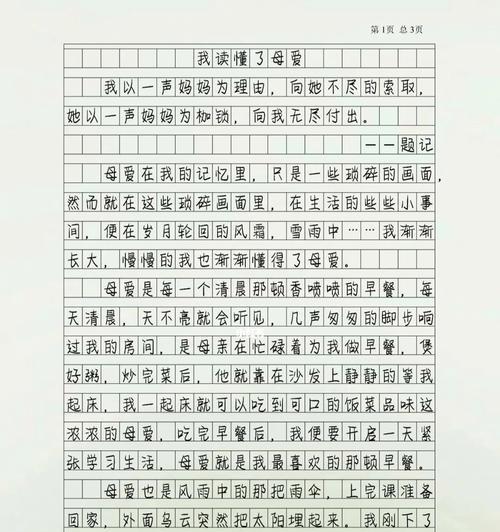 第1页 总3页
我读懂了母爱
我以一声妈妈为理由，向她不尽的索取，
她以一声妈妈为枷锁，向我无尽付出。
——题记
母爱在我的记忆里，只是一些琐碎的画面，
然而就在这些琐碎画面里，在生活的些些小事
间，便在岁月轮回的风霜，雪雨中……我渐渐
长大，慢慢的我也渐渐懂得了母爱。
母爱是每一个清晨那顿香喷喷的早餐，每
天清晨，天不亮就会听见，几声匆匆的脚步响
过我的房间，是母亲在忙碌着为我做早餐，煲
好粥，炒完菜后，他就靠在沙发上静静的等我
起床，我一起床就可以吃到可口的饭菜品味这
浓浓的母爱，吃完早餐后，我便要开启一天紧
张学习生活，母爱就是我最喜欢的那顿早餐。
母爱也是风雨中的那把雨伞，上完课准备
回家，外面乌云突然把太阳埋起来，我刚下了